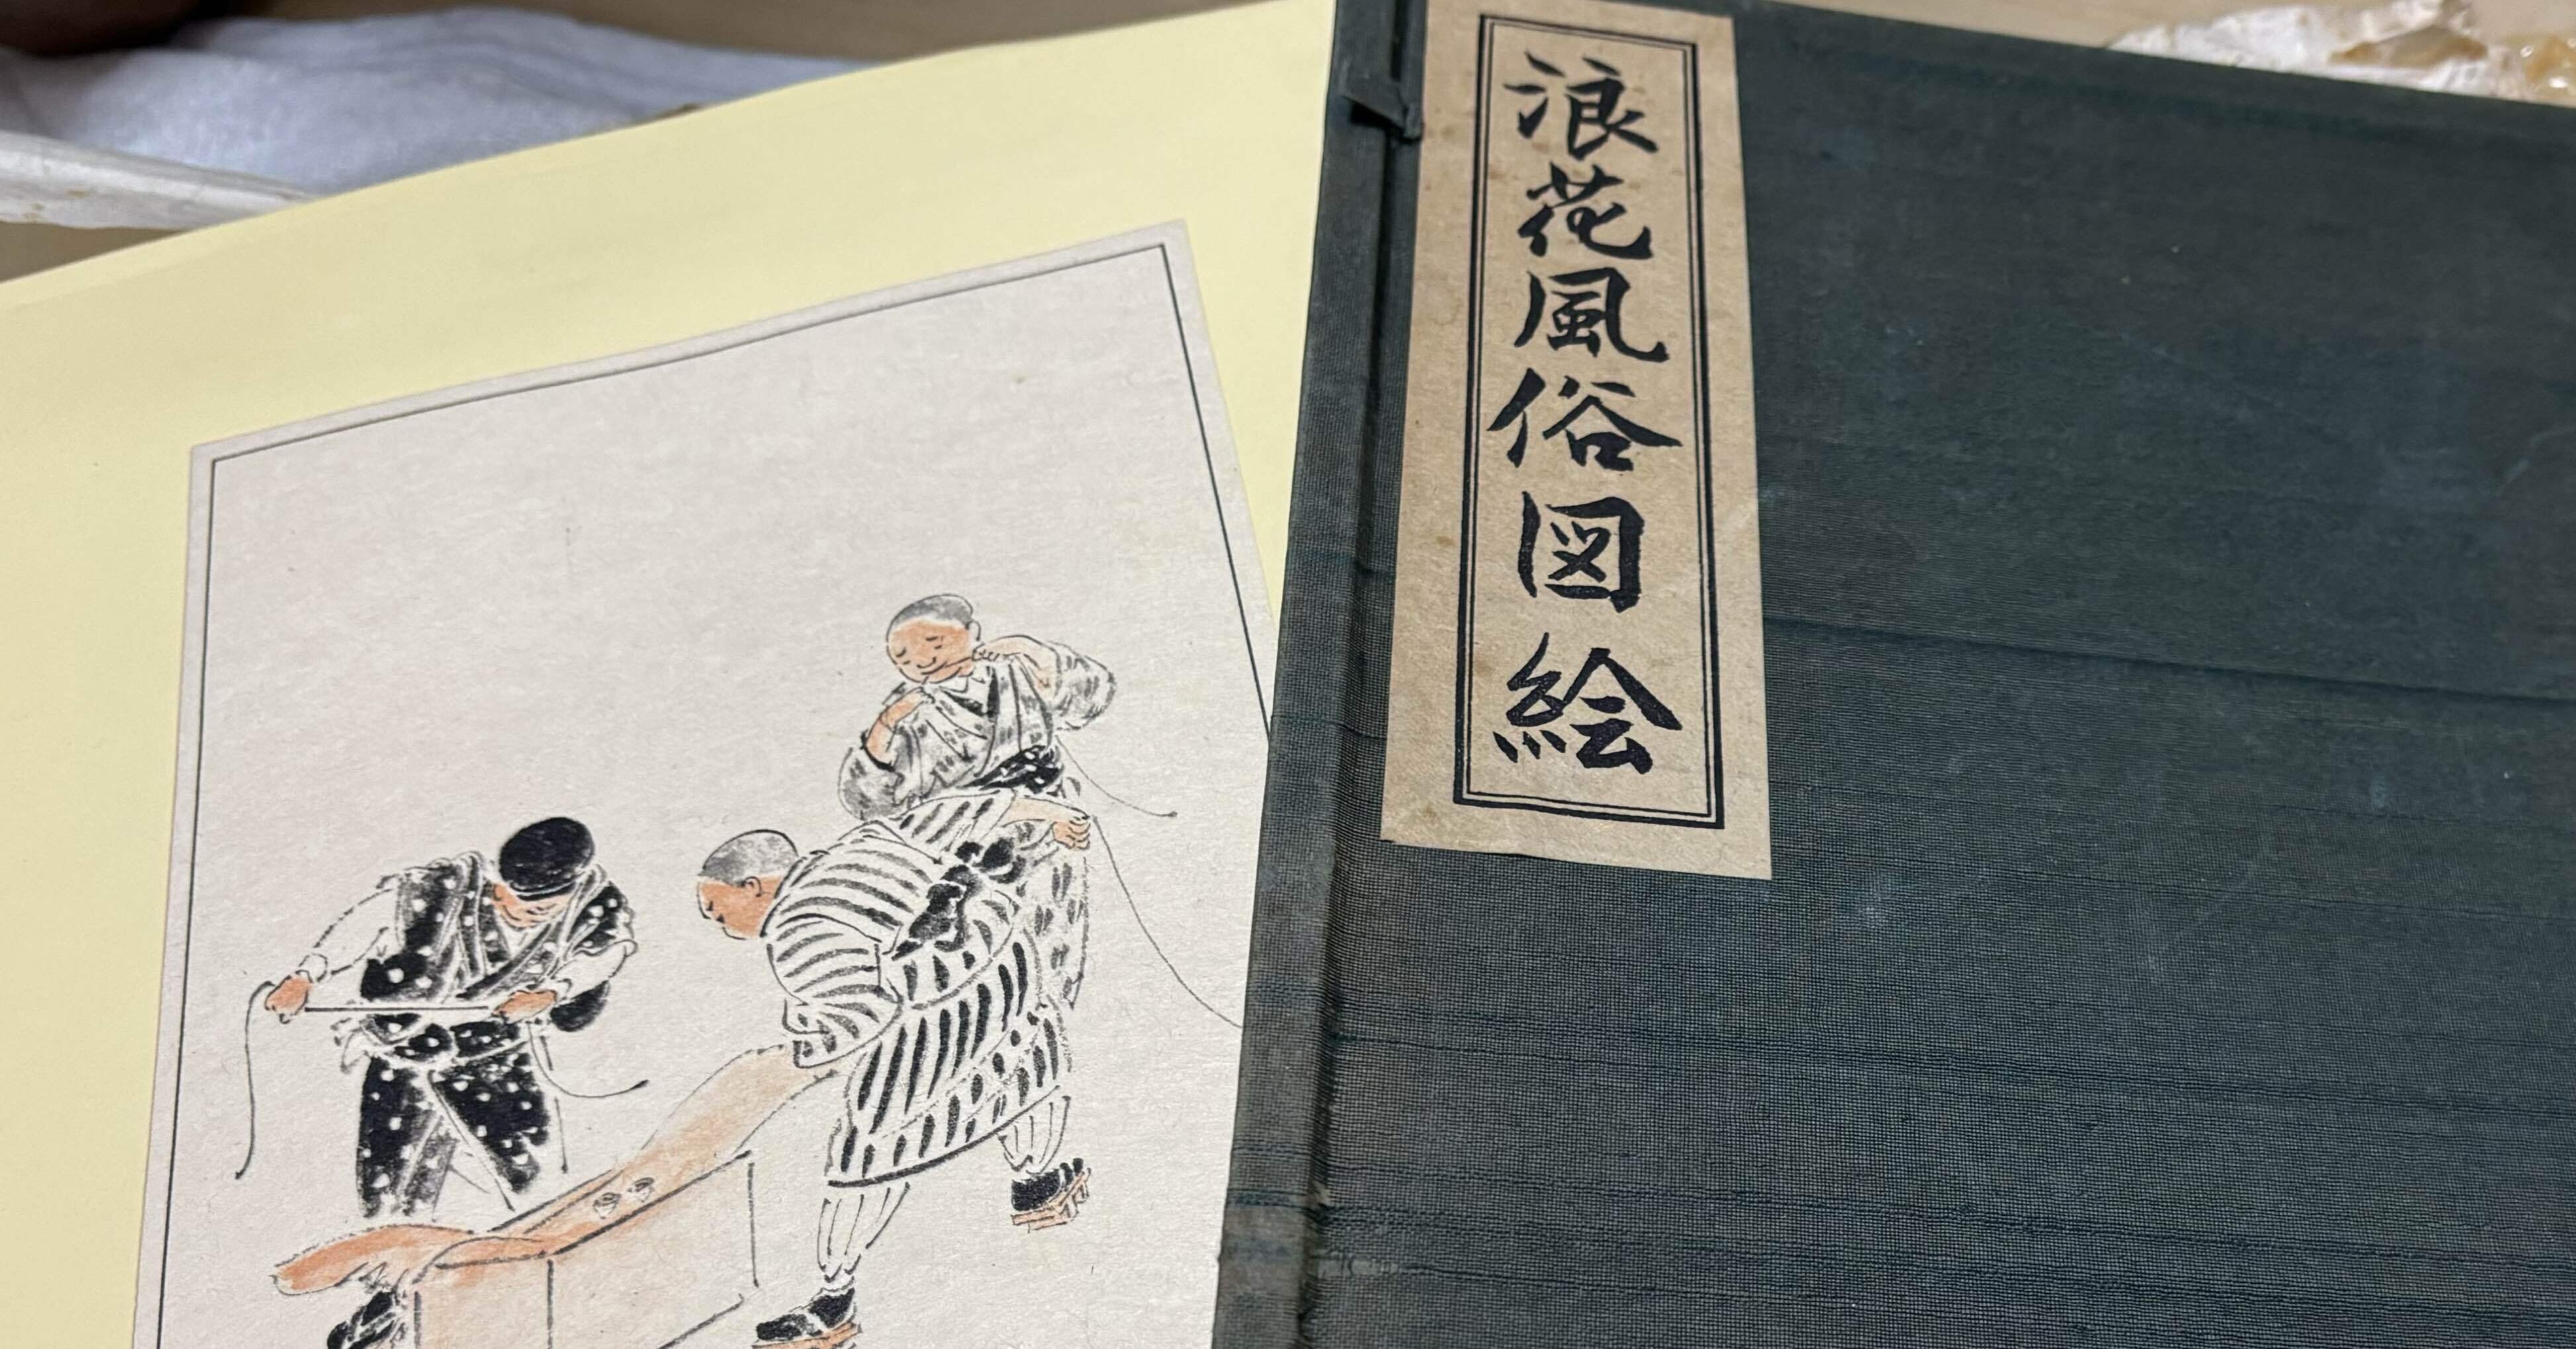 浪花風俗図絵